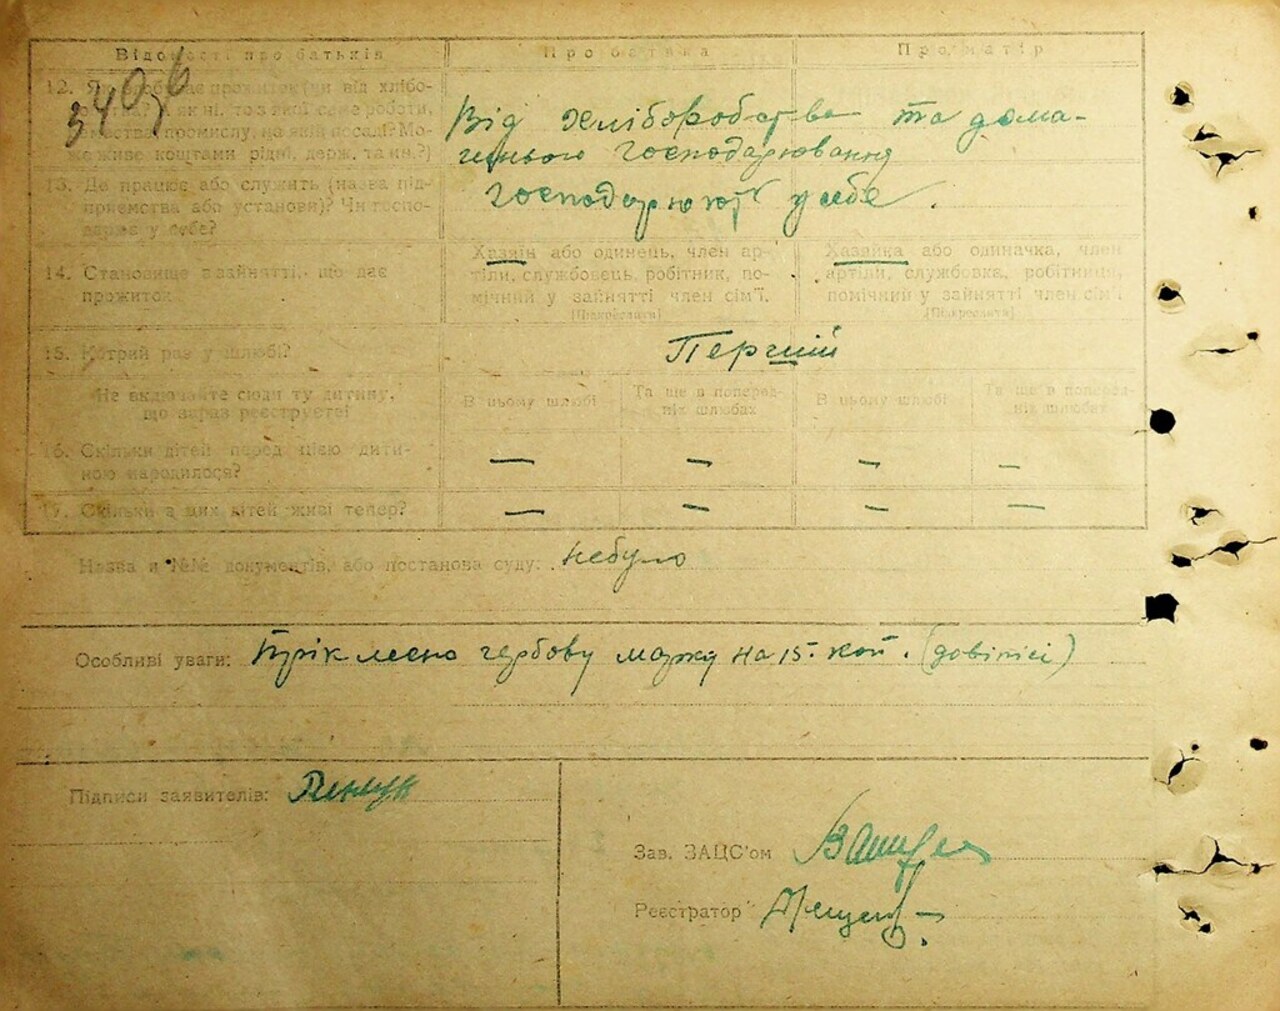 Відомості про батьків Про батька Про матір
12. Як здобуває прожиток: чи від хлібо-
робства? А як ні, то з якої саме роботи,
промислу, на якій посаді? Мо-
же живе коштами рідні, держ. та ин.?)
Від хліборобства та дома-
шнього господарювання
13. Де працює або служить (назва під-
приємства або установи)? Чи госпо-
дарює у себе?
господарюють у себе.
14. Становище в зайнятті, що дає
прожиток
Хазяїн або одинець, член ар-
тілі, службовець, робітник, по-
мічний у зайнятті член сім'ї.
(Підкреслити)
Хазяйка або одиначка, член
артілі, службовка, робітниця,
помічний у зайнятті член сім'ї
(Підкреслити)
15. Котрий раз у шлюбі?
Перший
Не включайте сюди ту дитину,
що зараз реєструєте!
В цьому шлюбі
Та ще в поперед-
ніх шлюбах
В цьому шлюбі
Та ще в поперед-
ніх шлюбах
16. Скільки дітей перед цією дити-
ною народилося?
— — — —
17. Скільки з цих дітей живі тепер?
— — — —
Назва й №№ документів, або постанова суду: небуло
Особливі уваги: Пріклеєно гербову марку на 15 коп. (довіписі)
Підписи заявителів:
Зав. ЗАЦС'ом
Реєстратор